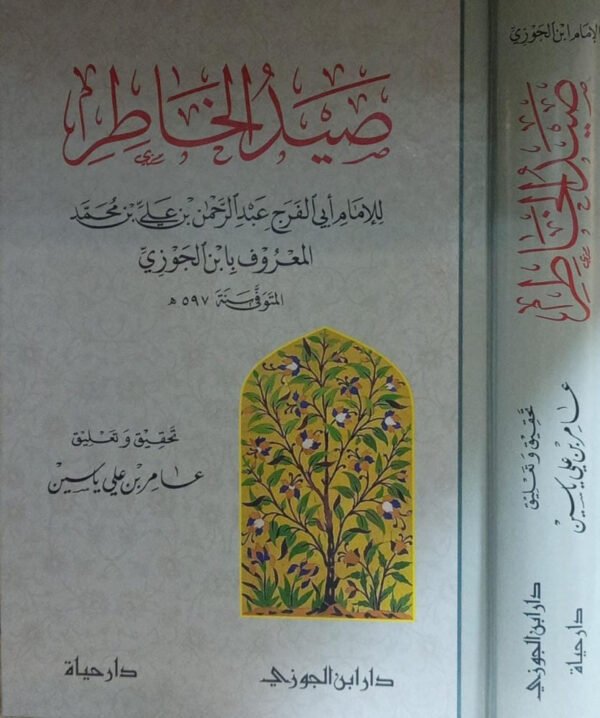 صَيْدُ الخَاطِرِ
لِلإمَامِ أَبِي الفَرَجِ عَبْدِ الرَّحْمٰنِ بْنِ عَلِيِّ بْنِ مُحَمَّد
المَعْرُوفِ بِابْنِ الجَوْزِيِّ
المتَوَفَّى سَنَةَ ٥٩٧ هـ
تَحْقِيق وَ تَعْلِيق
عَامِر بْن عَلي يَاسِين
دار ابن الجوزي
دار حياة
الإمَام ابْن الجَوْزِيِّ
صَيْدُ الخَاطِرِ
تَحْقِيق وَ تَعْلِيق
عَامِر بْن عَلي يَاسِين
دار ابن الجوزي
دار حياة